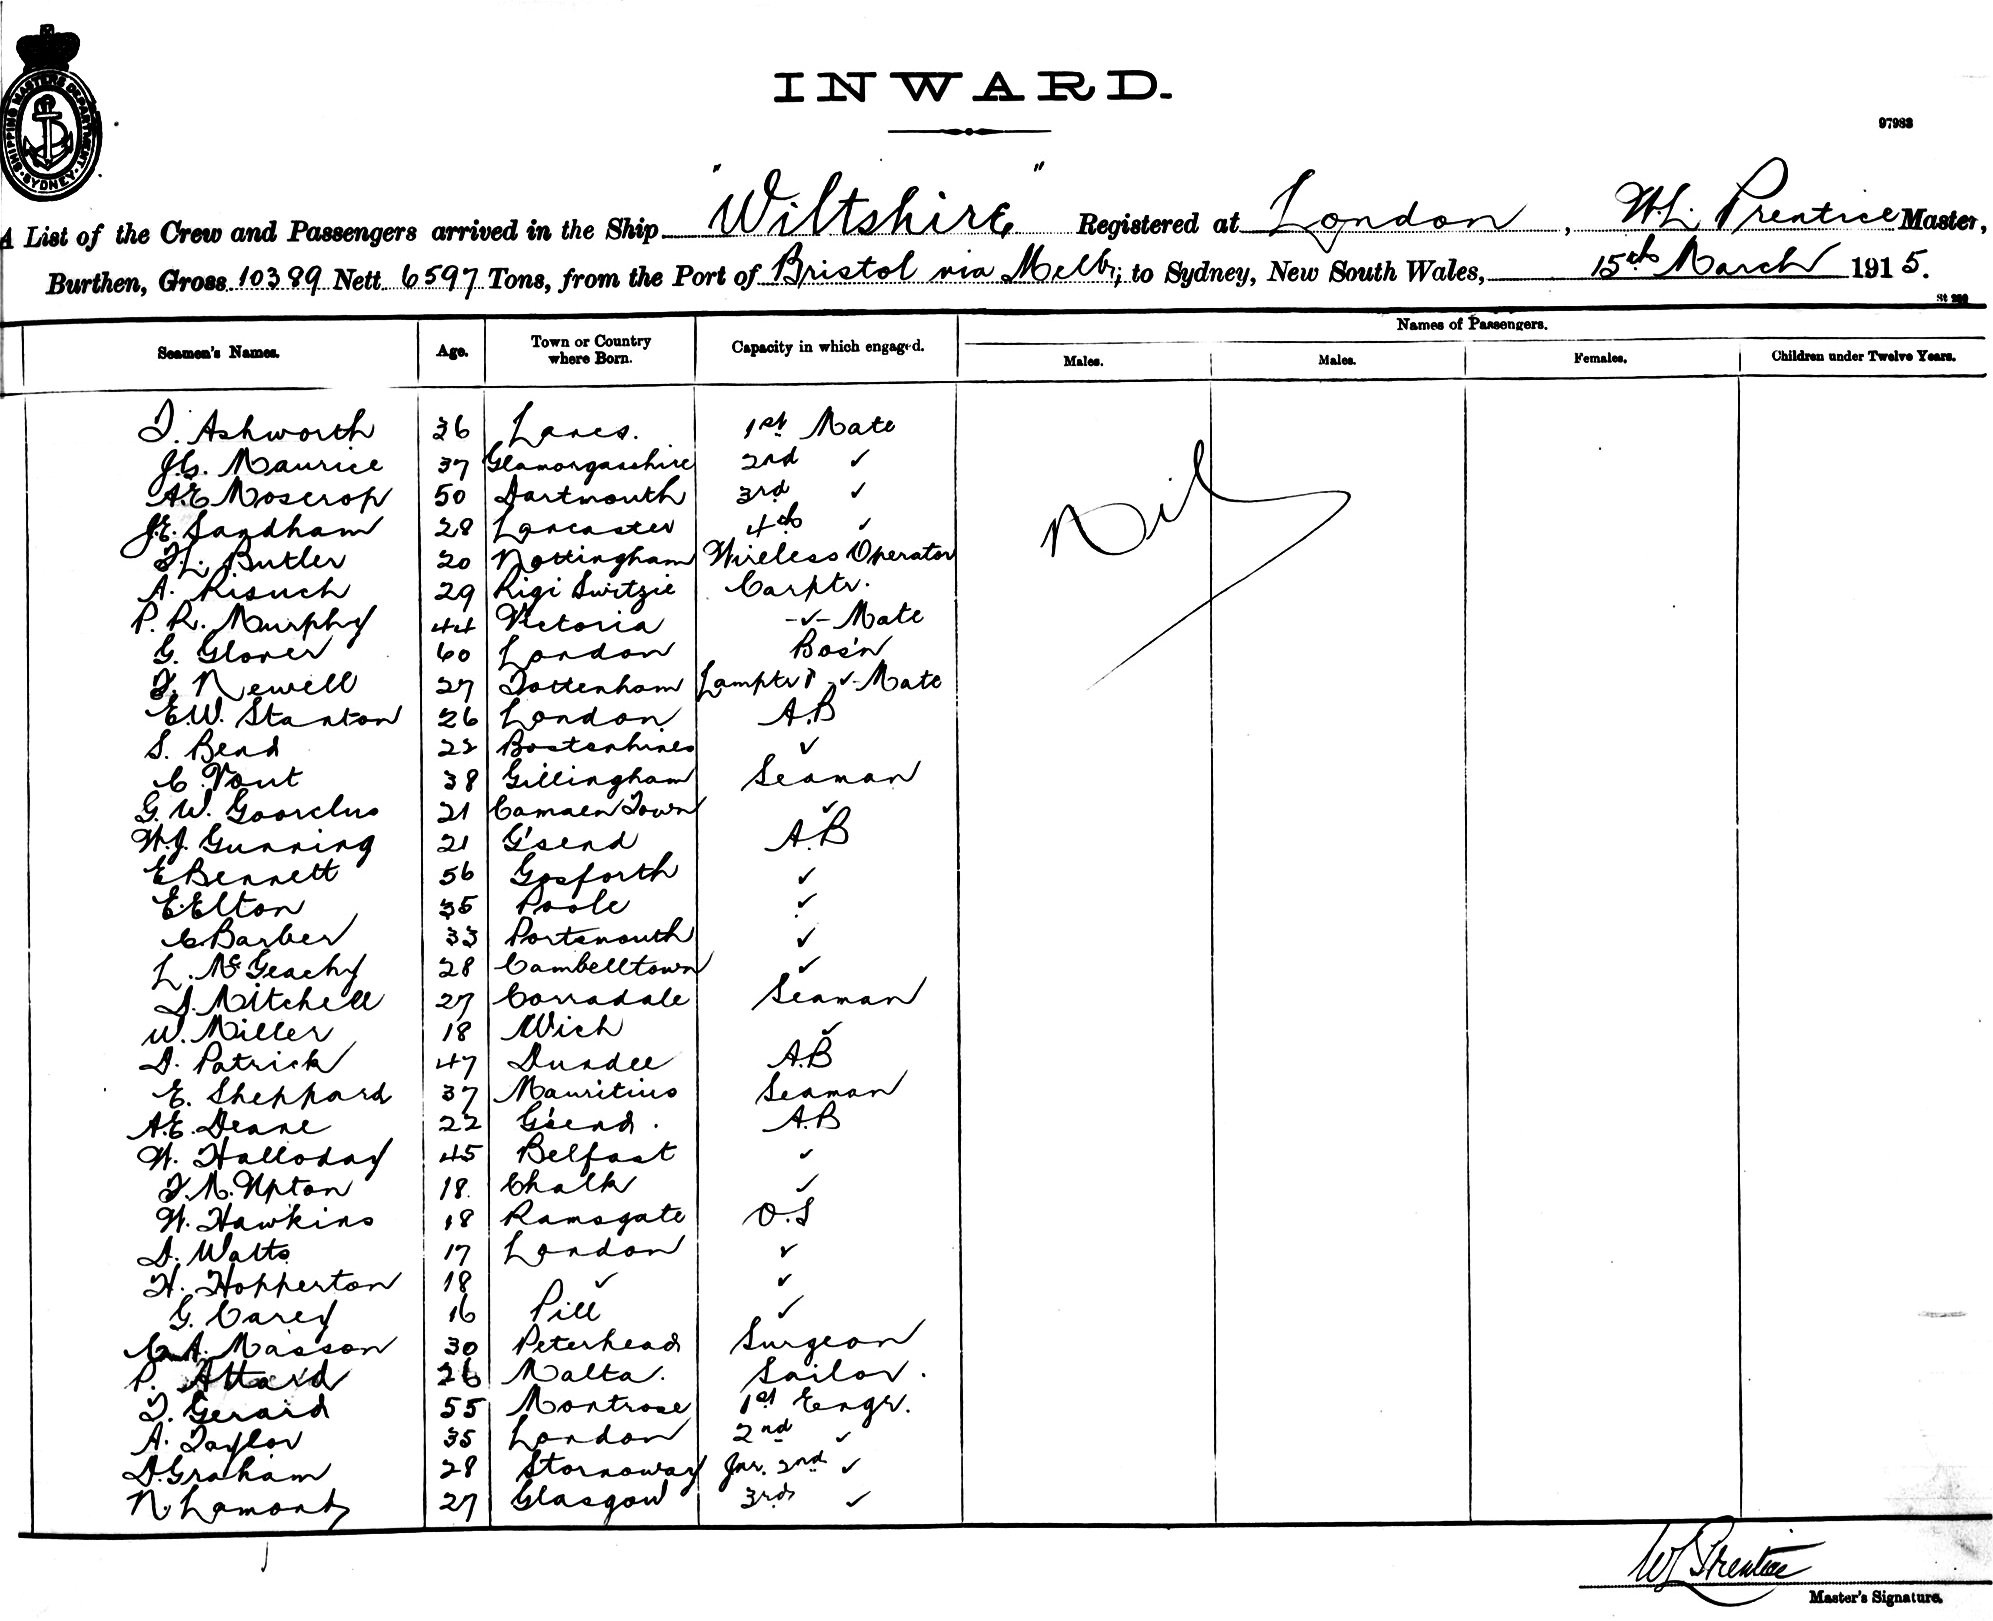 SHIPPING MASTERS DEPARTMENT. SYDNEY.
INWARD.
97983
A List of the Crew and Passengers arrived in the Ship "Wiltshire" Registered at London, W.L. Prentice Master,
Burthen, Gross 10389 Nett 6597 Tons, from the Port of Bristol via Melb; to Sydney, New South Wales, 15th March 1915.
Names of Passengers.
Seamen's Names. Age. Town or Country where Born. Capacity in which engaged. Males. Males. Females. Children under Twelve Years.
Nil
T. Ashworth 36 Lancs. 1st Mate
J.G. Maurice 37 Glamorganshire 2nd ✓
A.E. Moscrop 50 Dartmouth 3rd ✓
J.E. Sandham 28 Lancaster 4th ✓
F.L. Butler 20 Nottingham Wireless Operator
A. Risuch 29 Rigi Switzie Carptr.
P. R. Murphy 44 Victoria -✓- Mate
G. Glover 60 London Bos'n
F. Newell 27 Tottenham Lamptr -✓- Mate
E.W. Stanton 26 London A.B
S. Bend 22 ✓
C. Vout 38 Gillingham Seaman
G. W. 21 Camden Town ✓
W.J. Gunning 21 G'send A.B
E Bennett 56 Gosforth ✓
E. Elton 35 Poole ✓
C. Barber 33 Portsmouth ✓
L. McGeachy 28 Cambelltown ✓
D. Mitchell 27 Corradale Seaman
W. Miller 18 Wick ✓
D. Patrick 47 Dundee A.B
E. Sheppard 37 Mauritius Seaman
A.E. Deane 22 G'send. A.B
W. Halloday 45 Belfast ✓
F.M. Upton 18. Chalk ✓
W. Hawkins 18 Ramsgate O.S
D. Watts 17 London ✓
H. Hopperton 18 ✓ ✓
G. Carey 16 Pill ✓
C. A. Masson 30 Peterhead Surgeon
P. Attard 26 Malta. Sailor.
T. Gerard 55 Montrose 1st Engr.
A. Taylor 35 London 2nd ✓
D. Graham 28 Stornoway Jnr. 2nd ✓
N Lamont 27 Glasgow 3rd ✓
WL Prentice
Master's Signature.